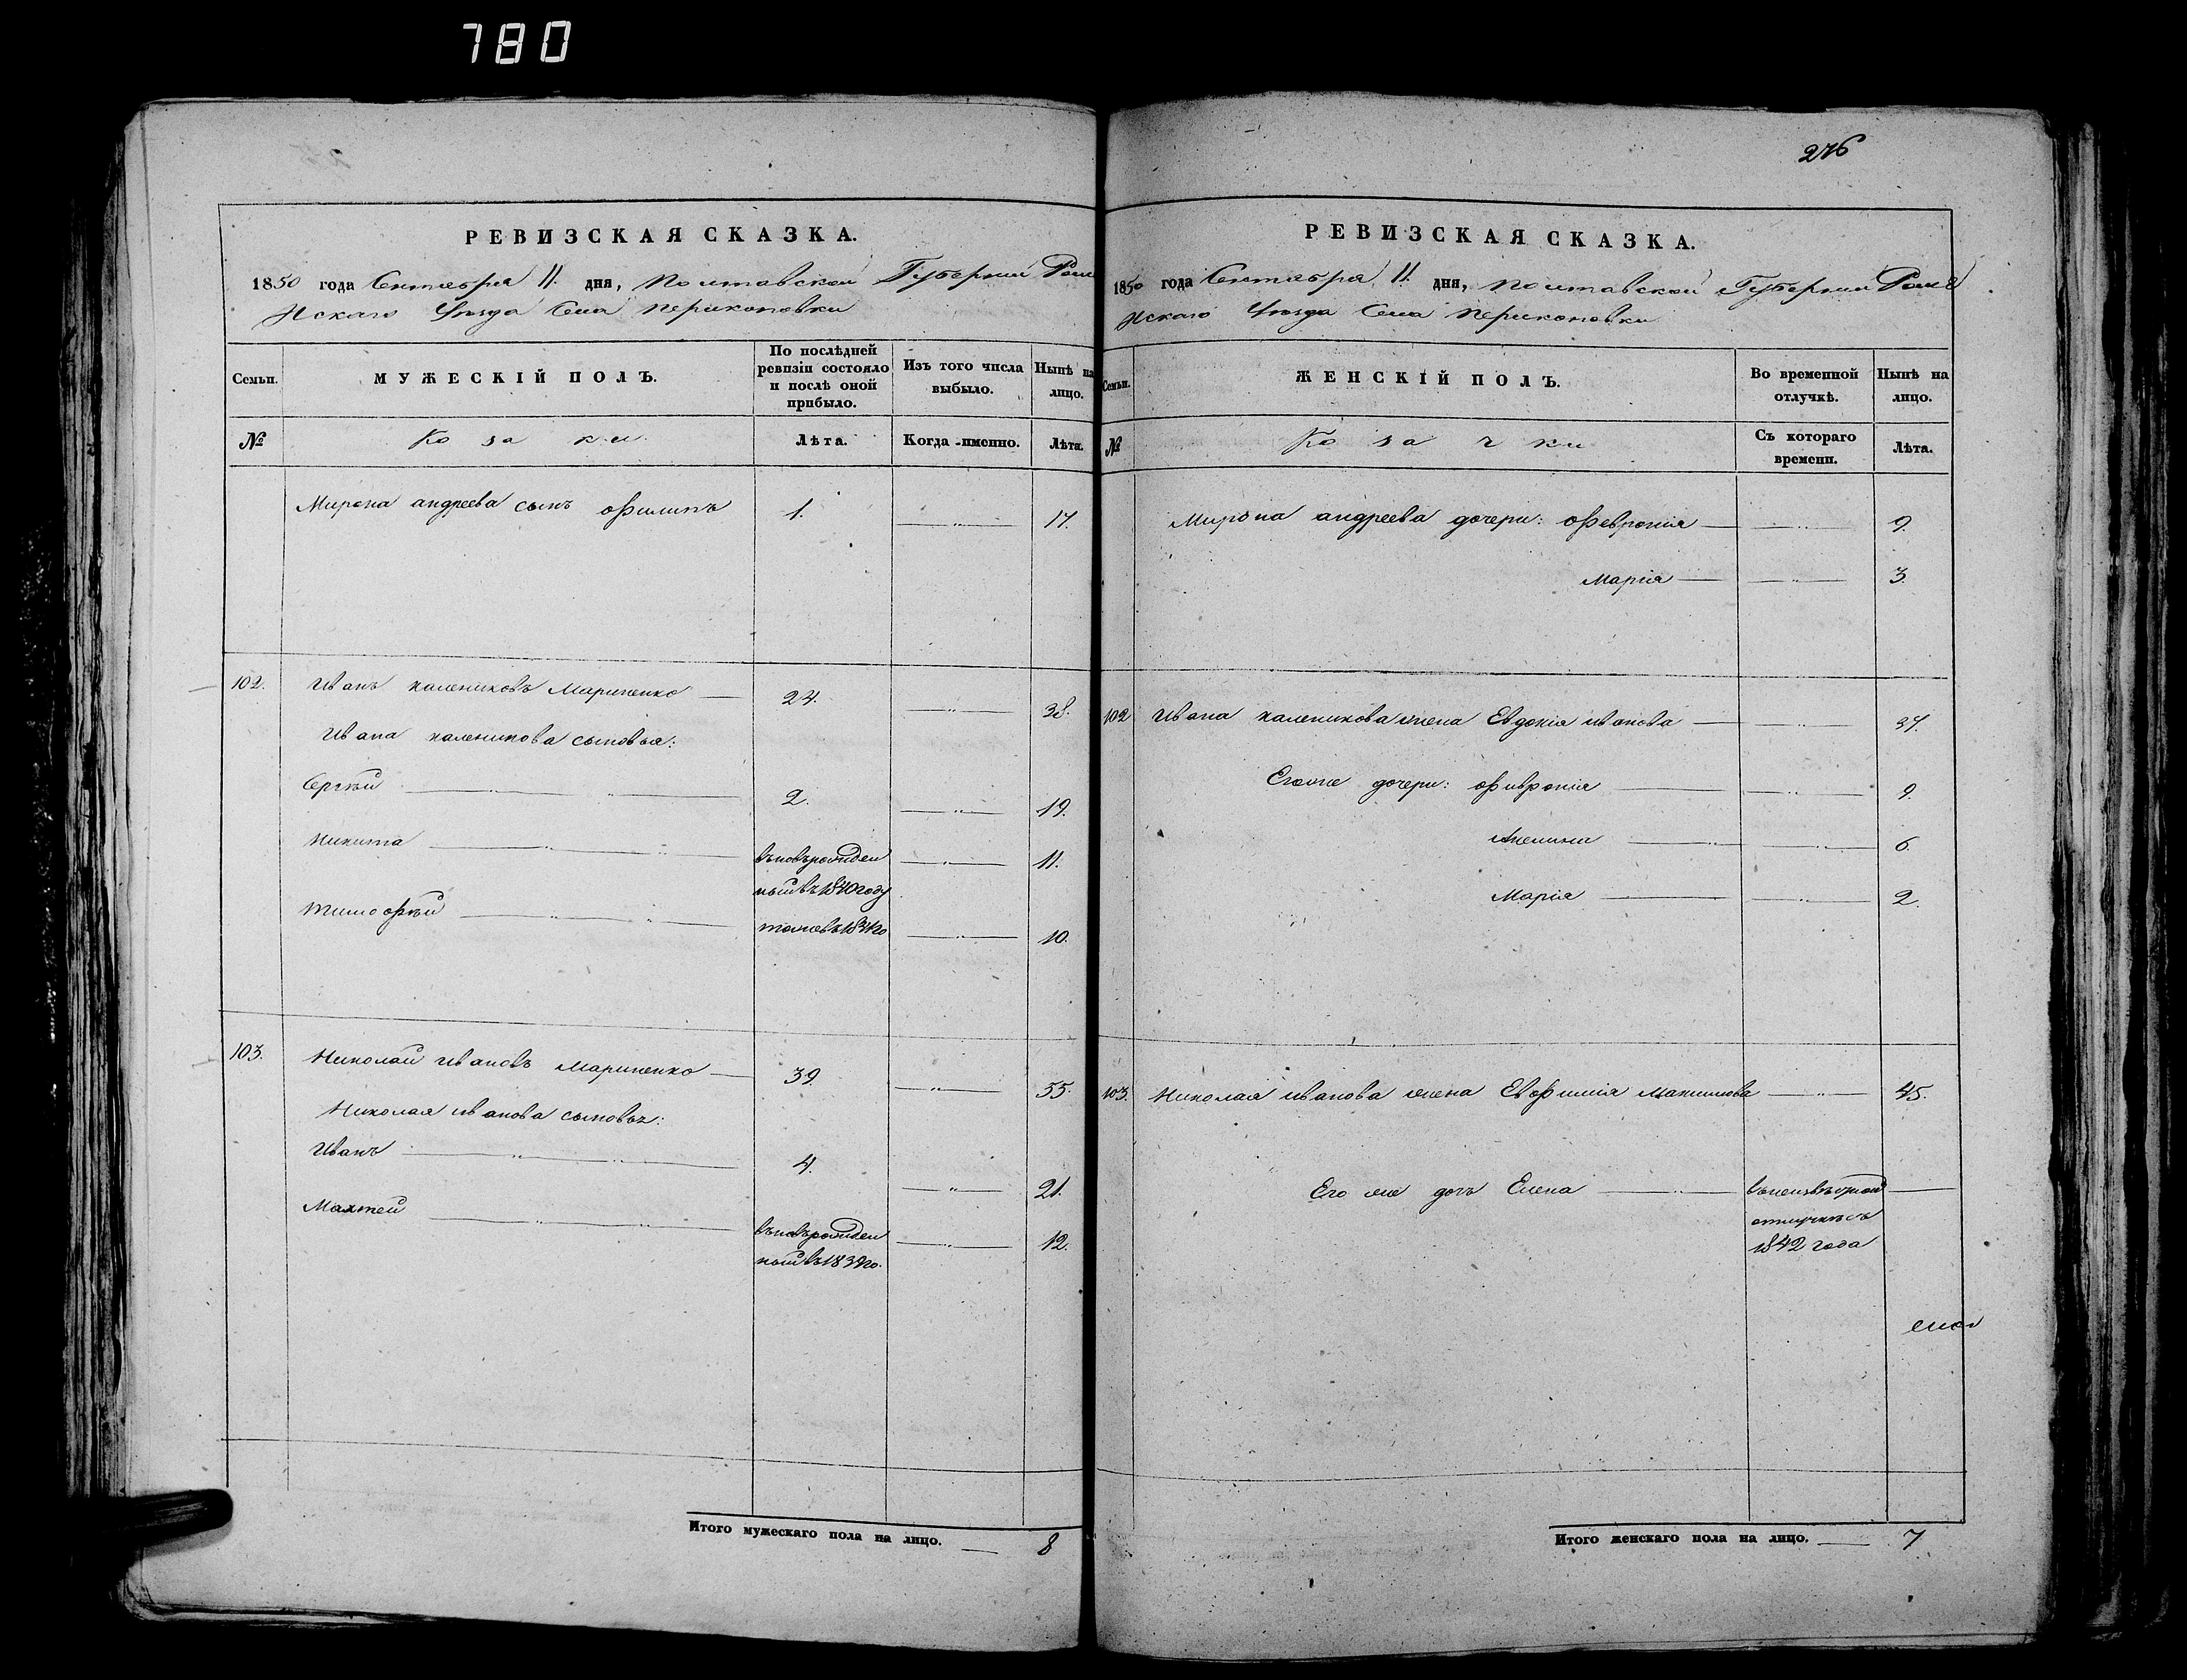 780
276
РЕВИЗСКАЯ СКАЗКА.
1850 года Сентября 11. дня, Полтавской Губернии Роме
нскаго Уезда Села Перекоповки
Семьи.
МУЖЕСКІЙ ПОЛЪ.
По послѣдней ревизіи состояло и послѣ оной прибыло.
Изъ того числа выбыло.
Нынѣ на лицо.
№
Козаки
Лѣта.
Когда именно.
Лѣта.
Мирона андреева сынъ Филипъ 1. 17.
102. Иванъ калениковъ Мариненко 24. 38.
Ивана каленикова сыновья:
Сергѣй 2. 19.
Никита вновьрожден 11.
ный въ 1840 году
Тимофѣй 10.
103. Николай Ивановъ Мариненко 39. 55.
Николая иванова сыновья:
Иванъ 4. 21.
Матвей вновьрожден 12.
ный въ 1839 го.
Итого мужескаго пола на лицо. 8
РЕВИЗСКАЯ СКАЗКА.
1850 года Сентября 11. дня, Полтавской Губернии Роме
нскаго Уезда Села Перекоповки
Семьи.
ЖЕНСКІЙ ПОЛЪ.
Во временной отлучкѣ.
Нынѣ на лицо.
№
Козачки
Съ котораго времени.
Лѣта.
Мирона андреева дочери: Феврония 9.
Мария 3.
102 Ивана каленикова жена Евдокия иванова 37.
Егоже дочери: Феврония 9.
Акелина 6.
Мария 2.
103. Николая иванова жена Евфимия Макимова 45.
Его же дочь Елена внеизвѣстной
отлучкѣ съ
1842 года
Итого женскаго пола на лицо. 7